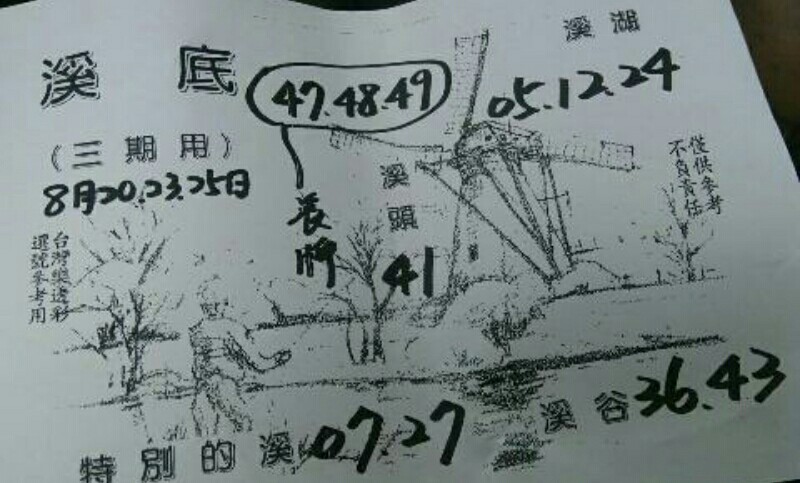 溪底
47.48.49
溪湖
05.12.24
(三期用)
8月20.23.25日
長牌
溪頭
41
僅供參考
不負責任
台灣樂透彩
選號參考用
溪谷36.43
特別的溪07.27